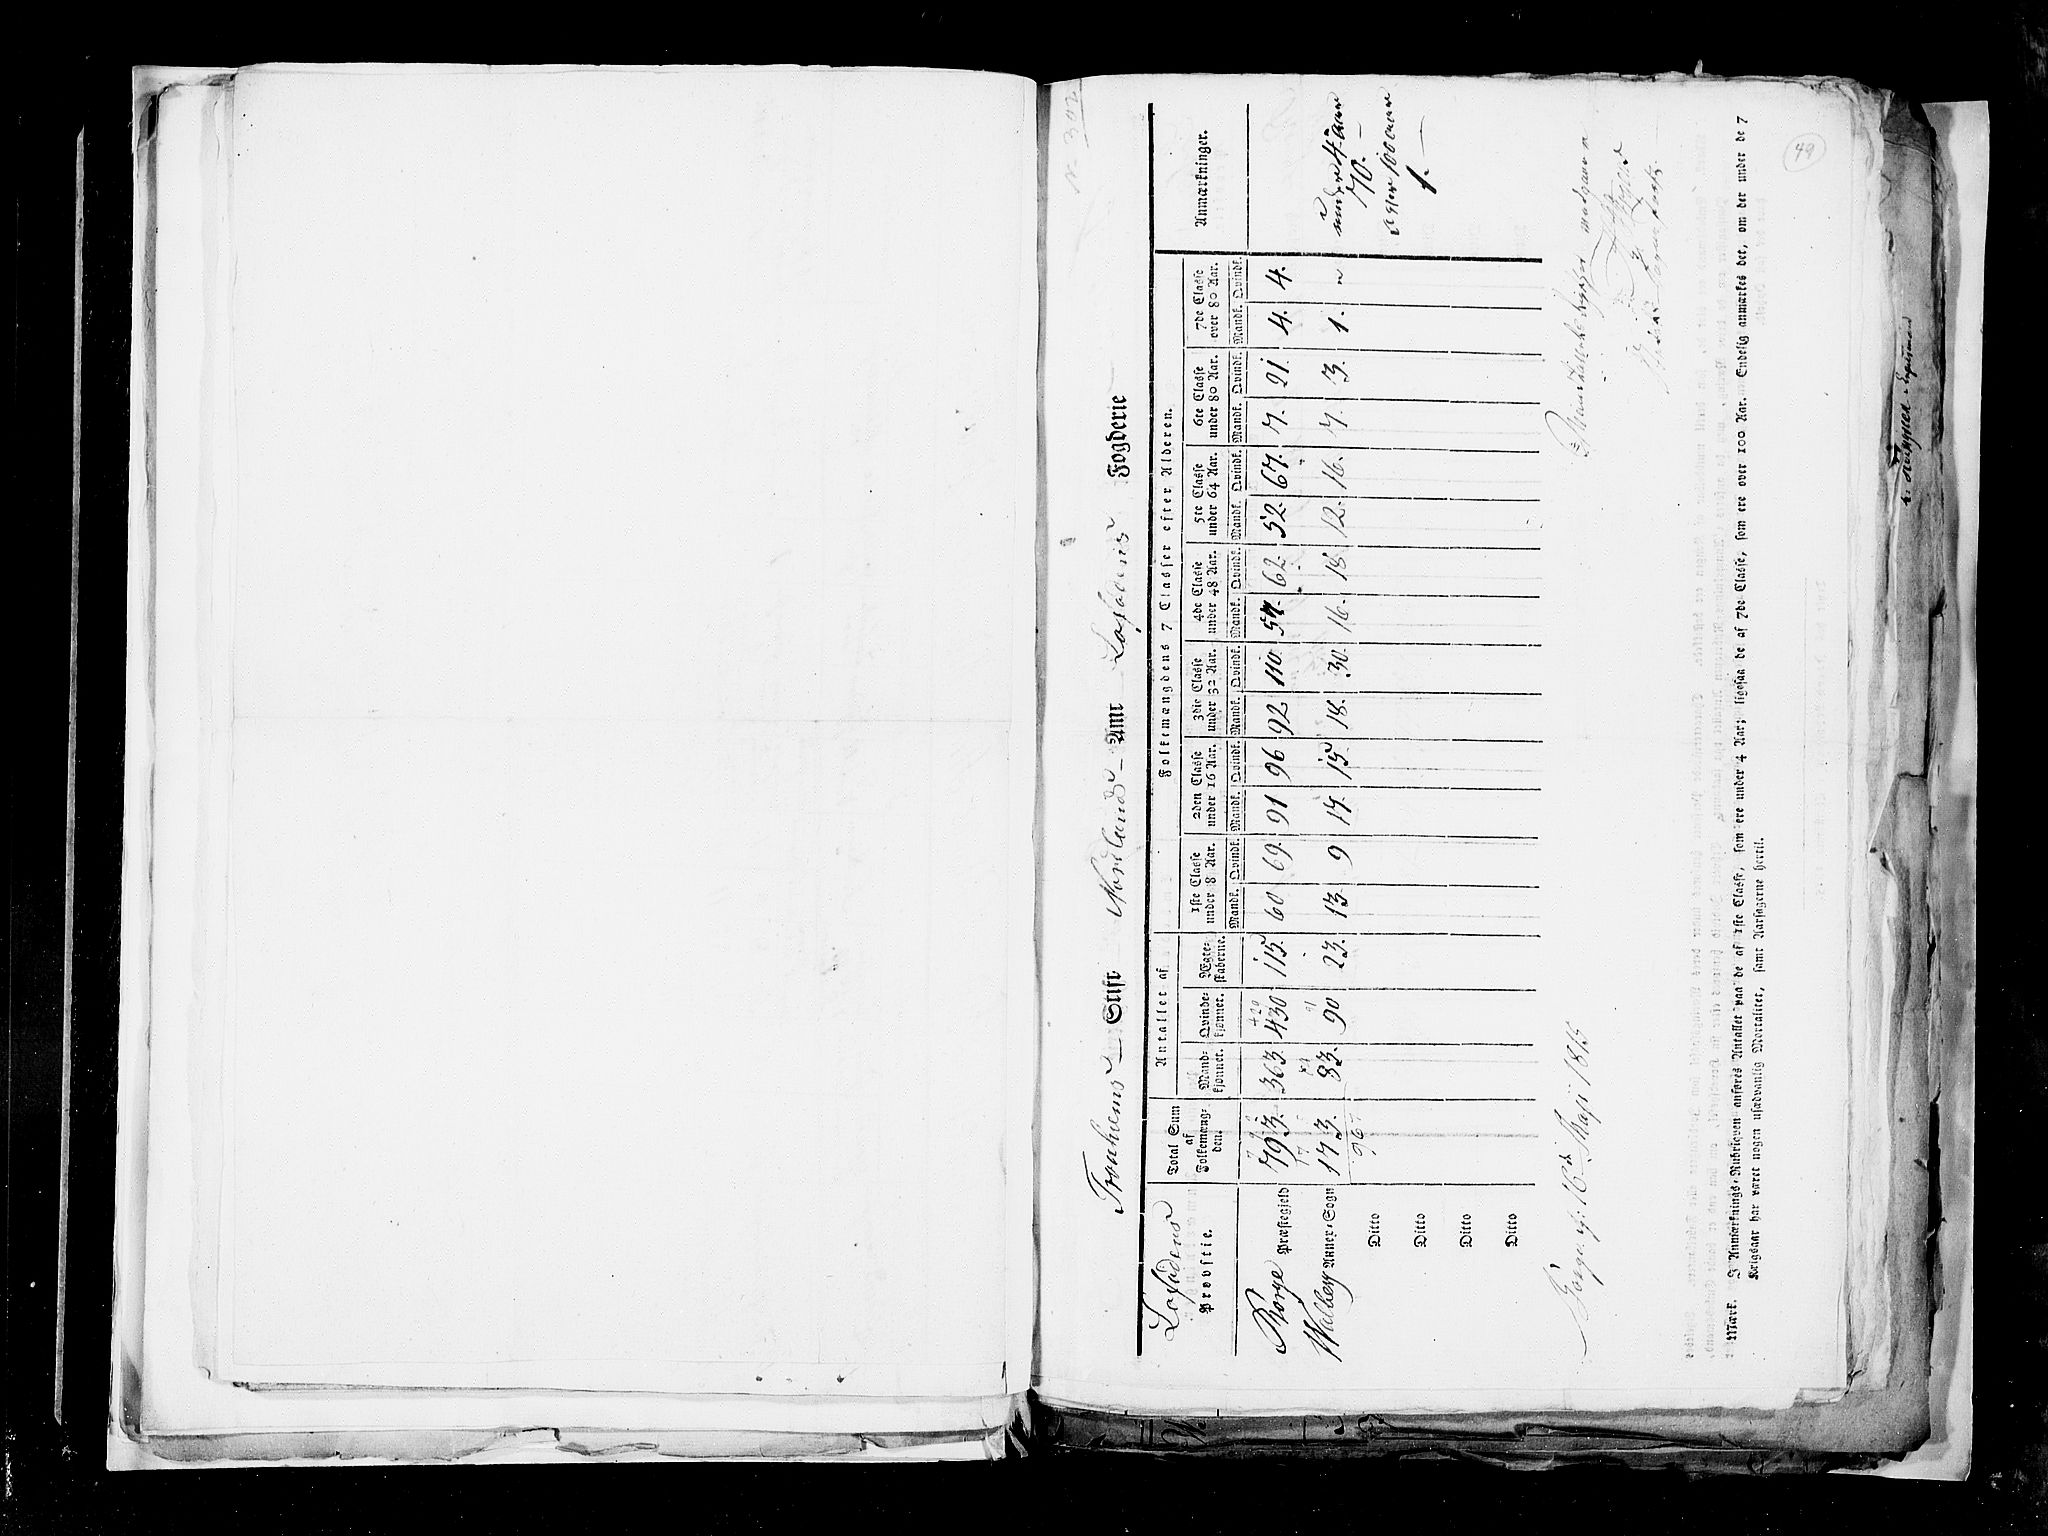 N. 302
49
Tronhiems Stift Nordlands Amt Lofodens Fogderie
Lofodens Provstie.
Total Sum af Folkemæng-den.
Antallet af
Mand-kjønnet.
Qvinde-kjønnet.
Ægte-skaberne.
Folkemængdens 7 Classer efter Alderen.
1ste Classe under 8 Aar.
2den Classe under 16 Aar.
3die Classe under 32 Aar.
4de Classe under 48 Aar.
5te Classe under 64 Aar.
6te Classe under 80 Aar.
7de Classe over 80 Aar.
Anmærkninger.
Mandk. Qvindk. Mandk. Qvindk. Mandk. Qvindk. Mandk. Qvindk. Mandk. Qvindk. Mandk. Qvindk. Mandk. Qvindk.
Borge Præstegield 793. 363. 430 115. 60 69. 91 96 92 110. 57. 62. 52. 67. 7. 21. 4. 4.
420
91
Walberg Annex-Sogn 173. 83. 90 23. 13. 9 14. 15 18. 30. 16. 18 12. 16. 7. 3. 1. "
967
under 4 Aar
70.
efter 100 Aar
1.
Ditto
Ditto
Ditto
Ditto
Borge d. 16de Maji 1815
Mærk. I Anmærknings-Rubriquen anføres Antallet paa de af 1ste Classe, som ere under 4 Aar; ligesaa de af 7de Classe, som ere over 100 Aar. Endelig anmærkes det, om der under de 7
Krigsaar har været nogen usædvanlig Mortalitet, samt Aarsagerne hertil.